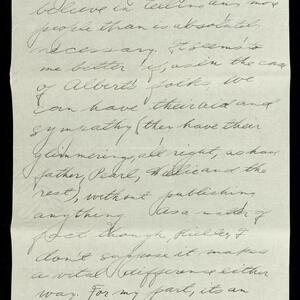 believe in telling any more
people than is absolutely
necessary. It seems to
me better if, as in the case
of Albert's folks, we
can have their aid and
sympathy (then have their
glimmering, all right, as have
father, Pearl, and the
rest), without publishing
anything as a matter of
fact though, I
don't suppose it makes
a vital difference either
way. For my part, its an